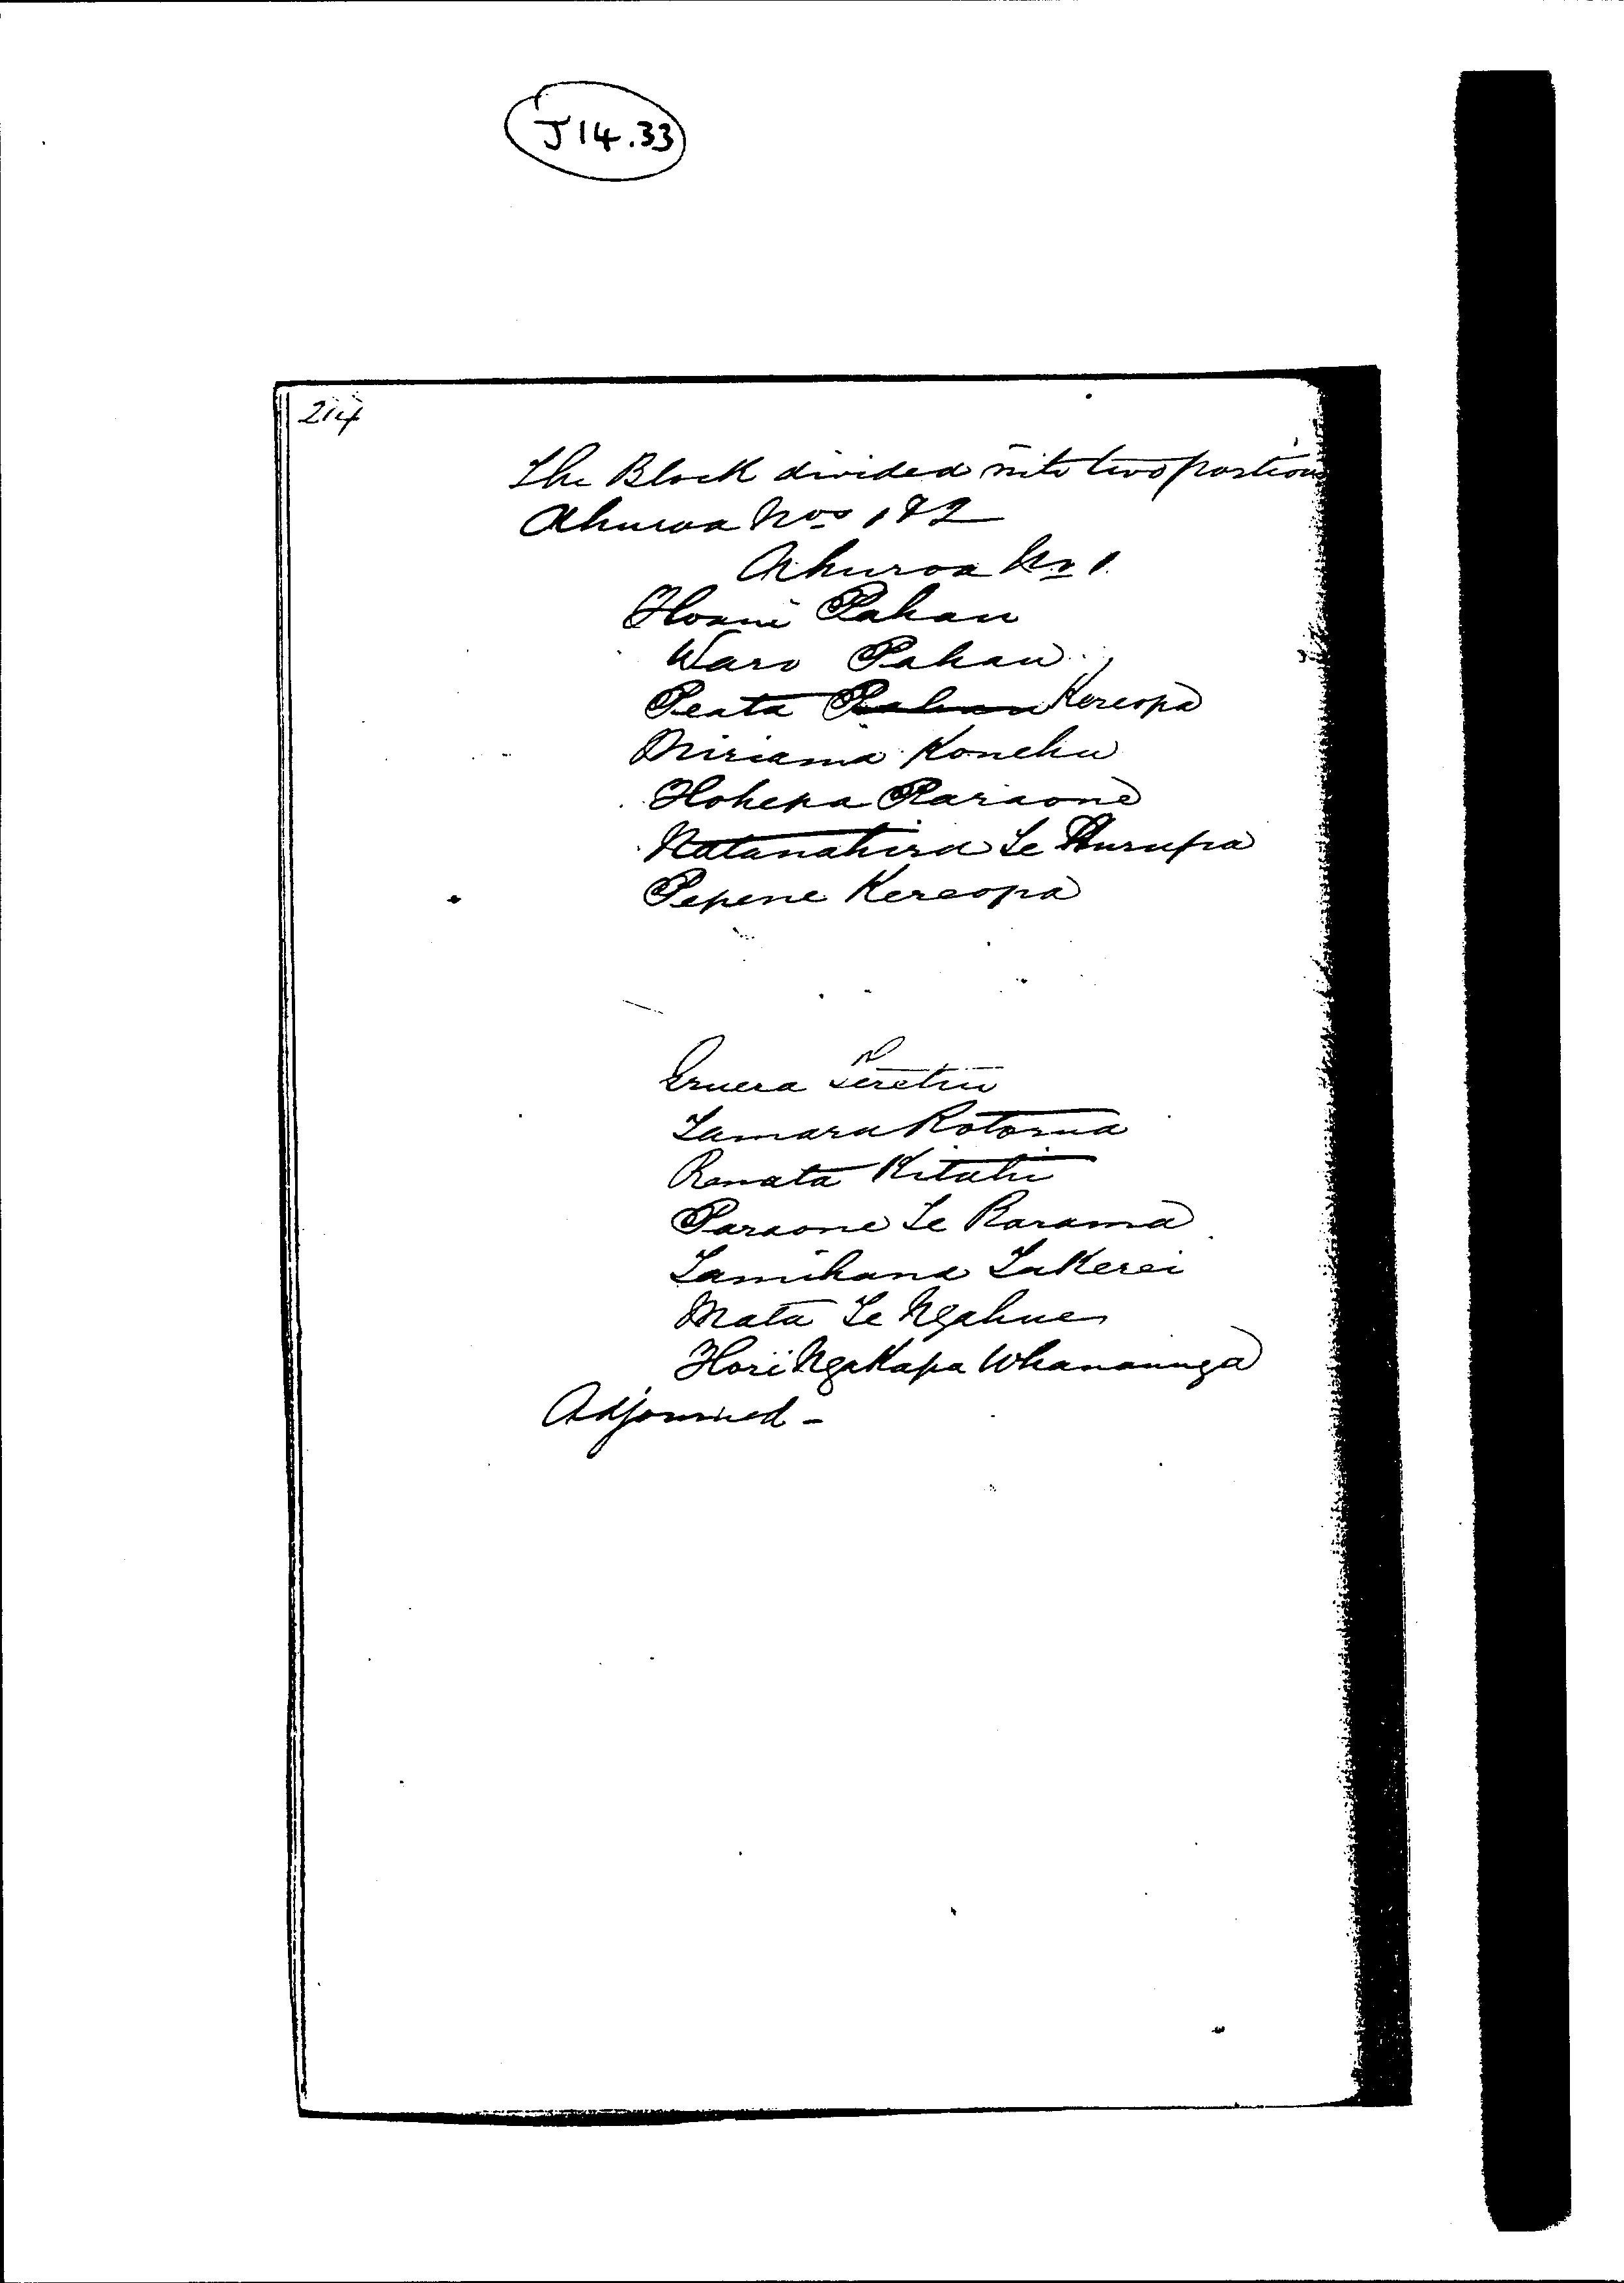 J14.33
214
The Block divided into two portions
Ahuroa Nos 1 & 2
Ahuroa No 1.
Hoani Pahau
Waro Pahau
Peata Pahau Kereopa
Miriama Konehu
Hohepa Paraone
Natanahira Te Hurupa
Pepene Kereopa
Eruera Teretiu
Tamara Rotorua
Renata Kitahi
Paraone Te Rarama
Tamihana Tukerei
Mata Te Ngahue
Hori Ngakapa Whanaunga
Adjourned -